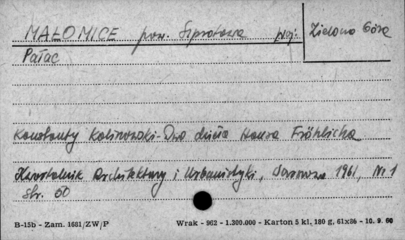 MAŁOMICE pow. Szprotawa woj. Zielona Góra
Pałac
Konstanty Kalinowski - Dwa dzieła Hansa Fröhlicha
Kwartalnik Architektury i Urbanistyki, Warszawa 1961, Nr 1
str. 60
B-15b - Zam. 1681/ZW/P Wrak - 962 - 1.300.000 - Karton 5 kl, 180 g, 61x86 - 10. 9. 60